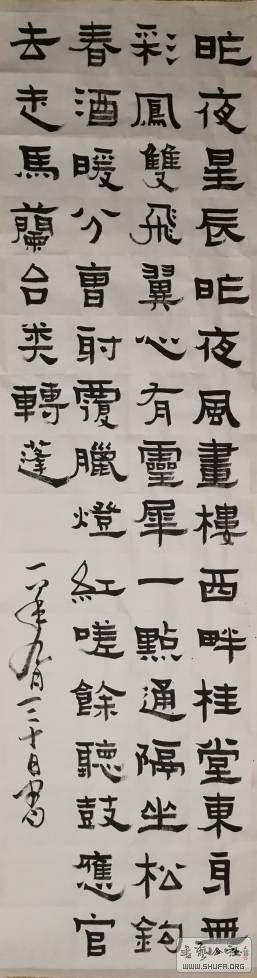 昨夜星辰昨夜風畫樓西畔桂堂東身無
彩鳳雙飛翼心有靈犀一點通隔坐松鉤
春酒暖分曹射覆臘燈紅嗟餘聽鼓應官
去走馬蘭台类轉蓬
年九月十日書
WWW.SHUFA.ORG